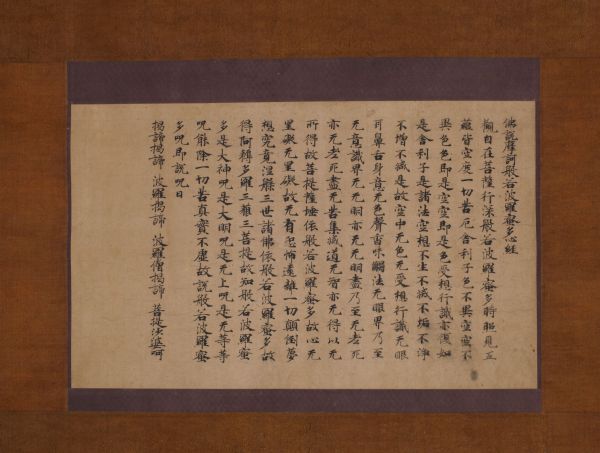 佛説摩訶般若波羅蜜多心経
觀自在菩薩行深般若波羅蜜多時照見五
蘊皆空度一切苦厄舍利子色不異空空不
異色色即是空空即是色受想行識亦復如
是舍利子是諸法空相不生不滅不垢不浄
不増不減是故空中无色无受想行識无眼
耳鼻舌身意无色聲香味觸法无眼界乃至
无意識界无无明亦无无明盡乃至无老死
亦无老死盡无苦集滅道无智亦无得以无
所得故菩提薩埵依般若波羅蜜多故心无
罣礙无罣礙故无有恐怖遠離一切顛倒夢
想究竟涅槃三世諸佛依般若波羅蜜多故
得阿耨多羅三藐三菩提故知般若波羅蜜
多是大神呪是大明呪是无上呪是无等等
呪能除一切苦真實不虚故説般若波羅蜜
多呪即説呪曰
揭諦揭諦 波羅揭諦 波羅僧揭諦 菩提娑婆呵